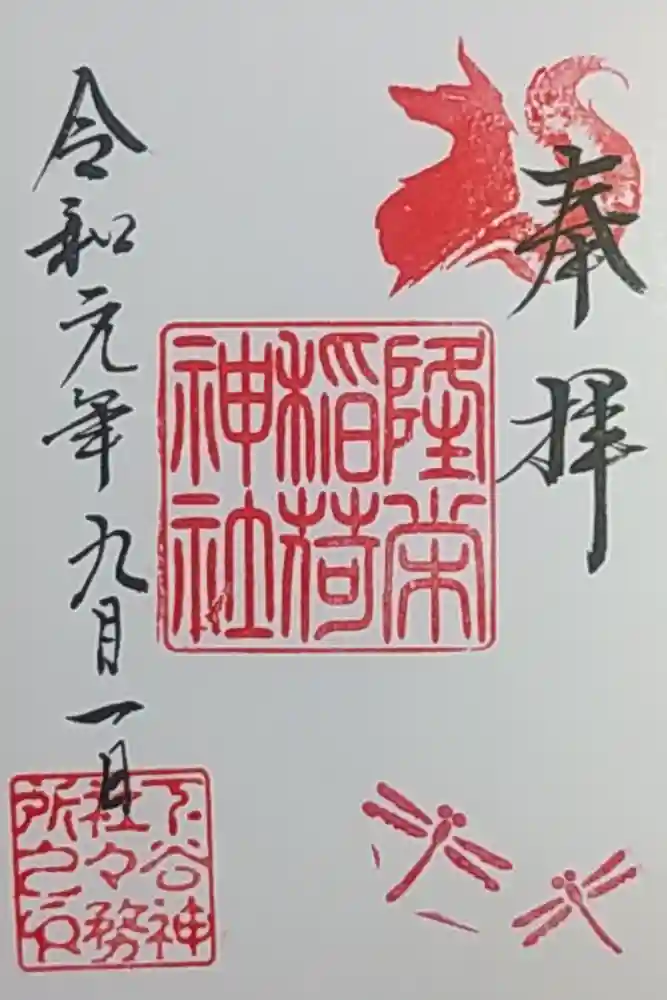 奉拝
隆栄
稲荷
神社
令和元年九月一日
下谷神
社々務
所之印